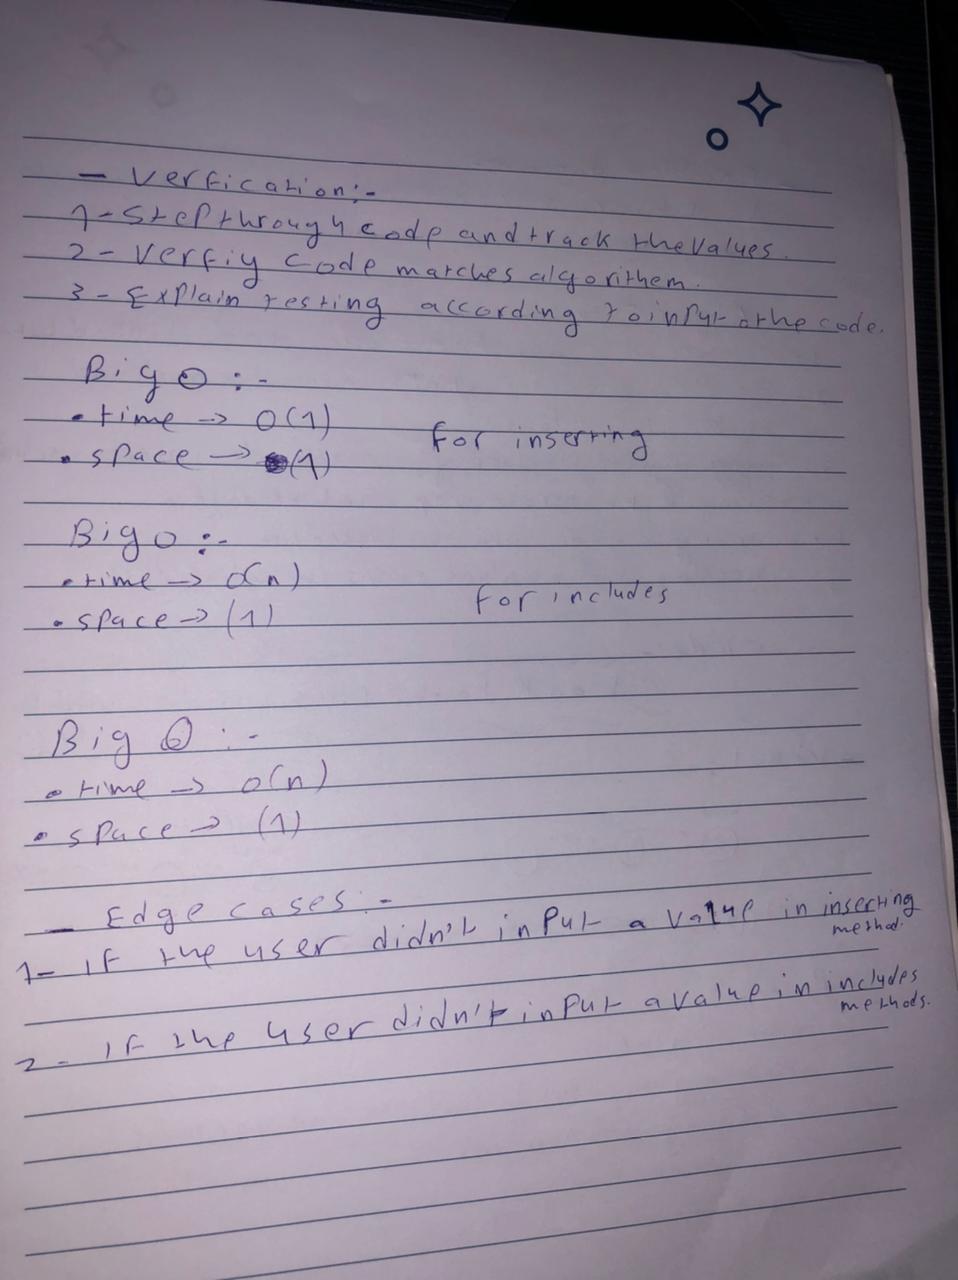 - Verfication:-
1- Step through code and track the values.
2- Verfiy code matches algorithem.
3- Explain testing according to input the code.
Big O :-
• time -> O(1)
• space -> (1)
for inserting
Big O :-
• time -> O(n)
• space -> (1)
for includes
Big O :-
• time -> O(n)
• space -> (1)
- Edge cases :-
1- if the user didn't input a value in inserting
method.
2- if the user didn't input a value in includes
methods.